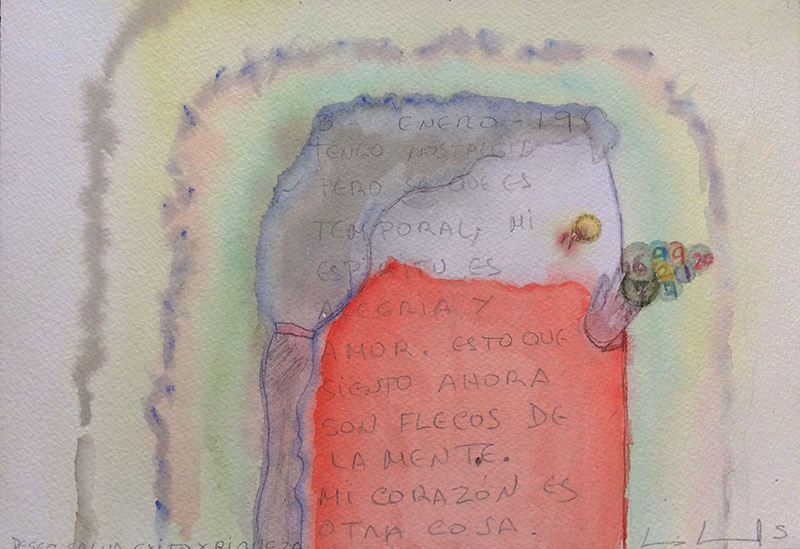 3 ENERO - 19
TENGO NOSTALGIA
PERO SE QUE ES
TEMPORAL; MI
ESPÍRITU ES
ALEGRIA Y
AMOR. ESTO QUE
SIENTO AHORA
SON FLECOS DE
LA MENTE.
MI CORAZÓN ES
OTRA COSA.
6 9 9 20
DESEO SALUD EXITO Y RIQUEZA
S.